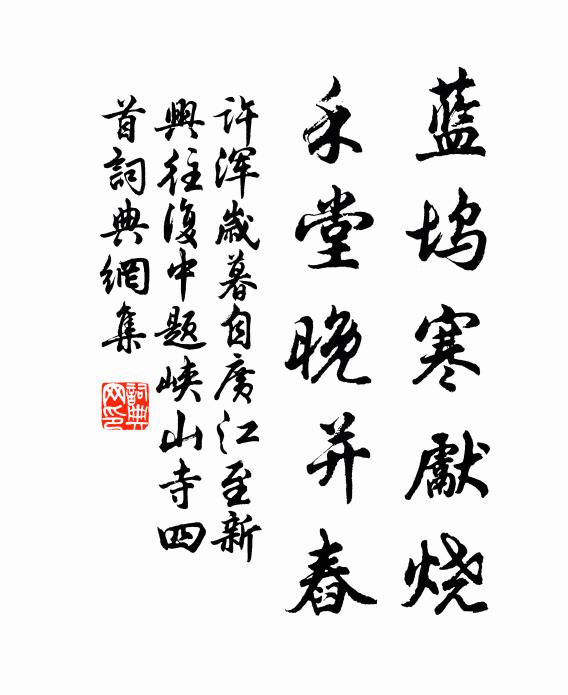 藍坞寒獻烧
禾堂晚并舂
許浑歲暮自廣江至新
興往復中题峡山寺四
首詞典網集
詞典网印